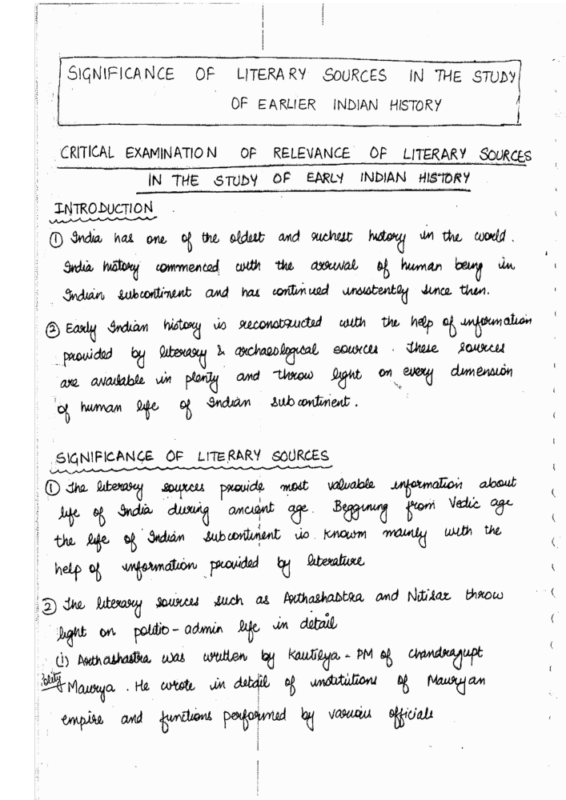 SIGNIFICANCE OF LITERARY SOURCES IN THE STUDY
OF EARLIER INDIAN HISTORY
CRITICAL EXAMINATION OF RELEVANCE OF LITERARY SOURCES
IN THE STUDY OF EARLY INDIAN HISTORY
INTRODUCTION
① India has one of the oldest and richest history in the world.
India history commenced with the arrival of human being in
Indian subcontinent and has continued insistently since then.
② Early Indian history is reconstructed with the help of information
provided by literary & archaeological sources. These sources
are available in plenty and throw light on every dimension
of human life of Indian subcontinent.
SIGNIFICANCE OF LITERARY SOURCES
① The literary sources provide most valuable information about
life of India during ancient age. Beggining from Vedic age
the life of Indian subcontinent is known mainly with the
help of information provided by literature
② The literary sources such as Arthashastra and Nitisar throw
light on politio-admin life in detail
(i) Arthashastra was written by Kautilya - PM of Chandragupt
Polity Maurya. He wrote in detail of institutions of Mauryan
empire and functions performed by various officials